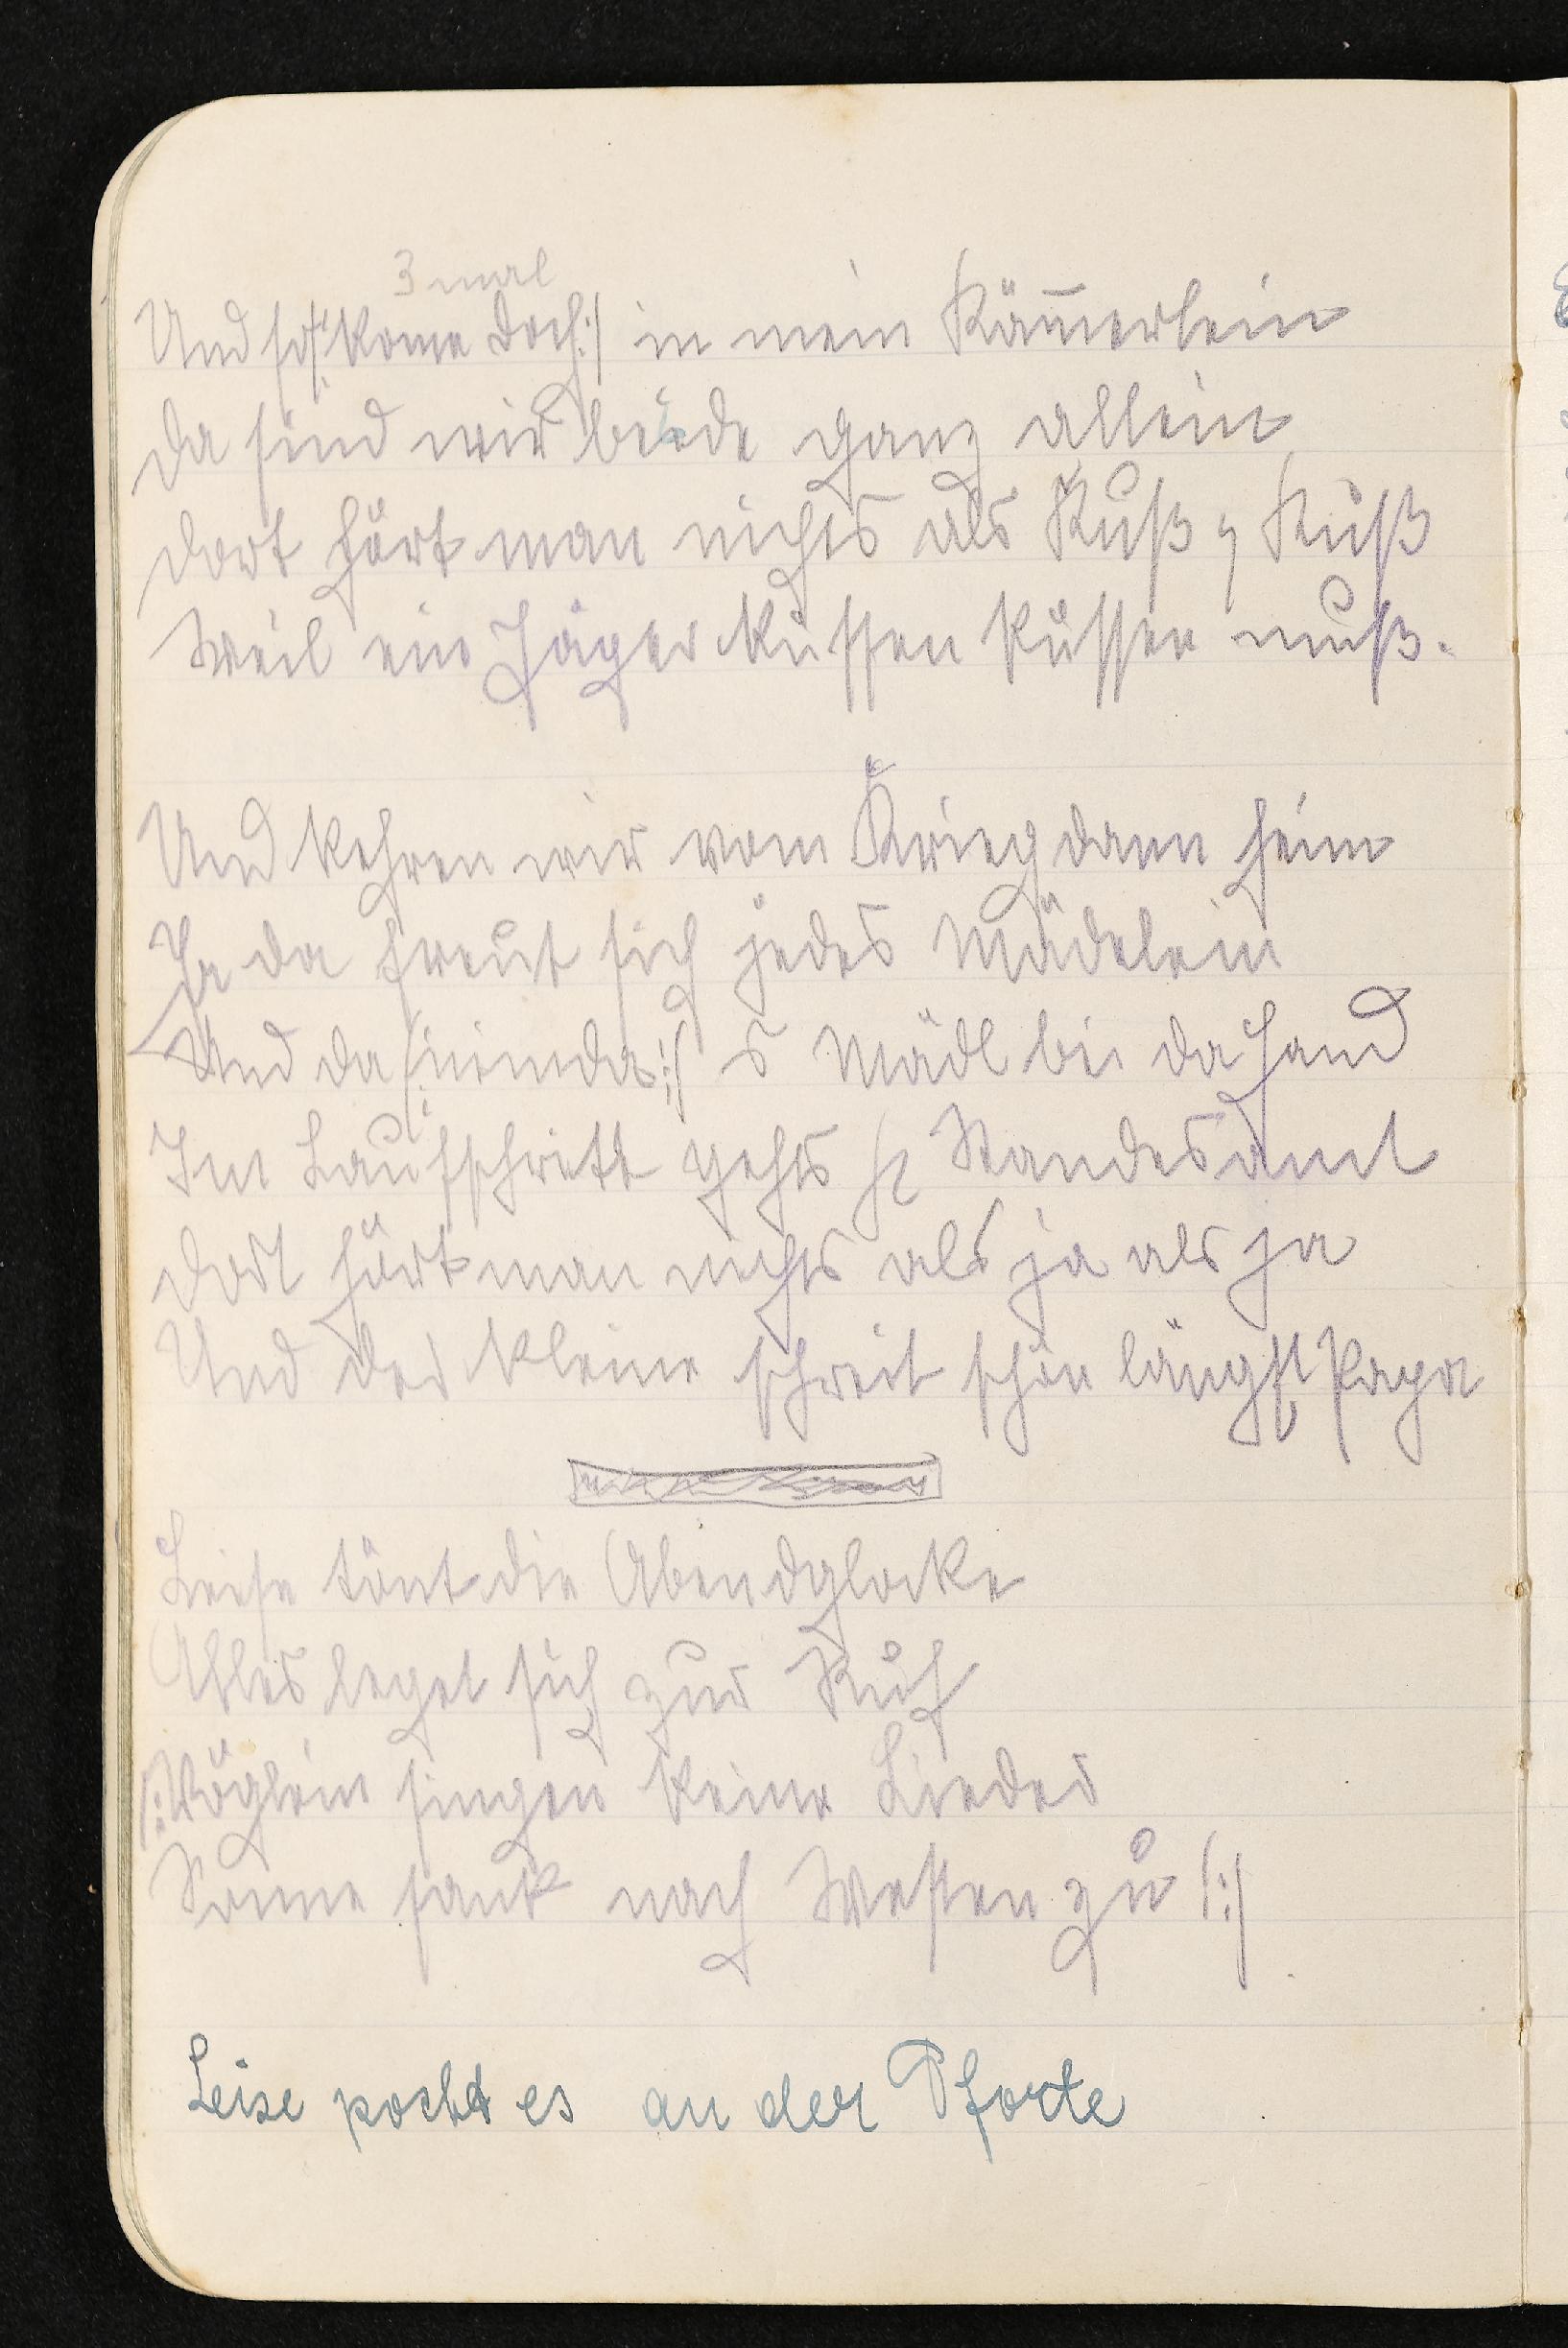 3 mal
Und so |: kome doch :| in mein Kam̄erlein
da sind wir beide ganz allein
dort hört man nichts als Kuß y Kuß
Weil ein Jäger Küssen Küssen muß.
Und kehren wir vom Krieg dann heim
Ja da freut sich jedes Mädelein
Und da |: nimda :| s Mädl bei da Hand
Im Laufschritt gehts Standesamt
dort hört man nichts als ja als ja
Und der kleine schreit schon längst Papa
Leise tönt die Abendglocke
Alles leget sich zur Ruh
|: Vöglein singen keine Lieder
Sonne sank nach Westen zu |:|
Leise pocht es an der Pforte